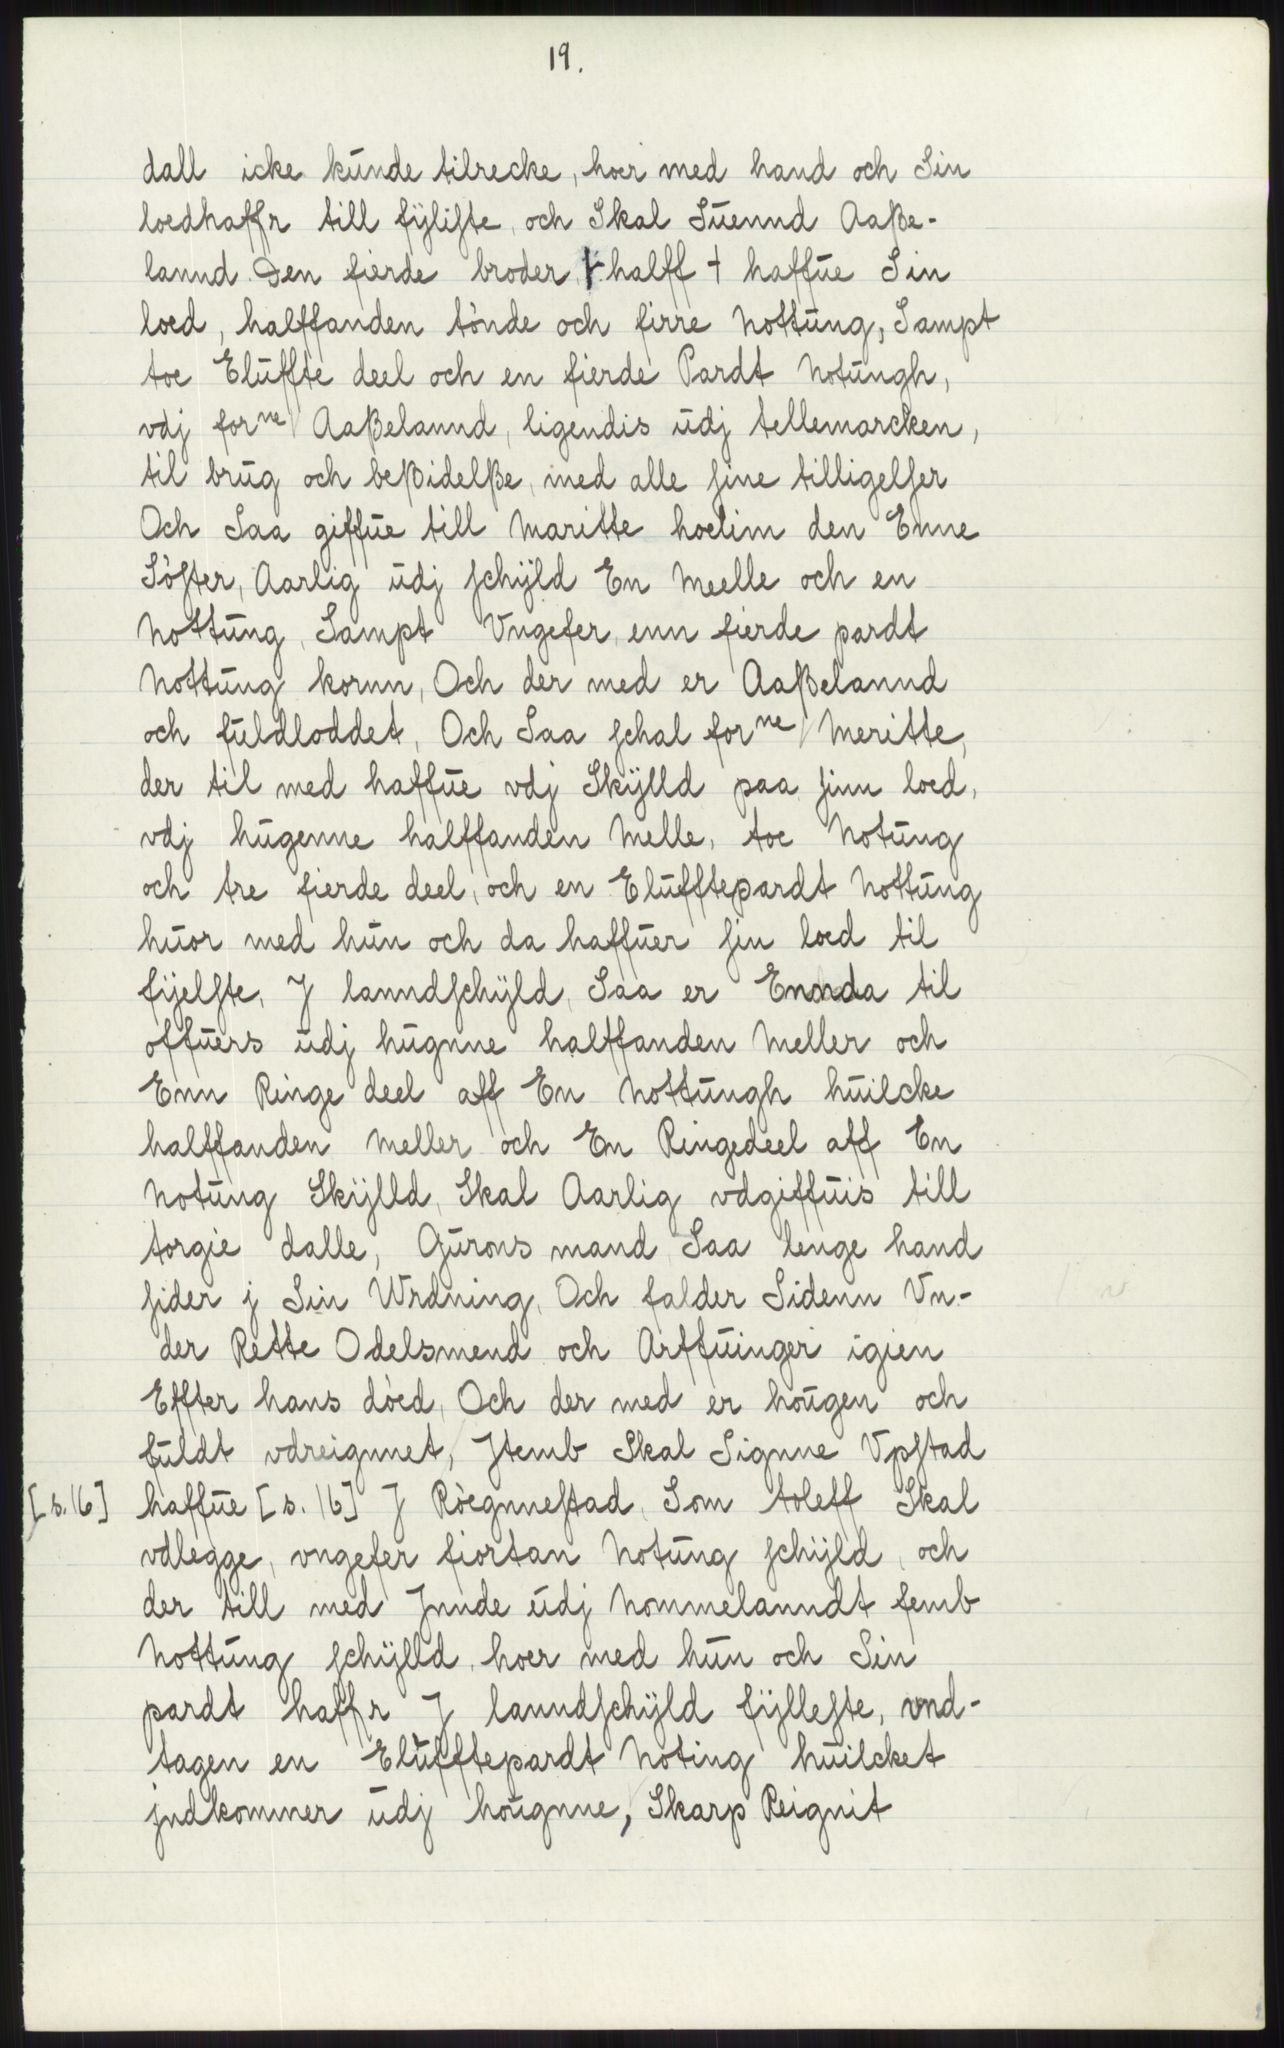 19.
dall icke kunde tilrecke, hoer med hand och Sin
loedhaffr till fÿliste, och Skal Suennd Aaße-
lannd Den fierde broder † halff † haffue Sin
loed, halffanden tønde och firre Nottung, Sampt
toe Eluffte deel och en fierde Pardt Notungh,
vdj forne Aaßelannd, ligendis udj tellemarcken,
til brug och beßidelße, med alle sine tilligelser
Och Saa giffue till Maritte hoelim den Enne
Søster, Aarlig udj schÿld En Meelle och en
Nottung, Sampt Vngefer enn fierde pardt
Nottung kornn, Och der med er Aaßelannd
och fuldloddet, Och Saa schal forne Meritte,
der til med haffue vdj Skÿlld paa sinn loed,
vdj hugenne halffanden Melle, toe Notung
och tre fierde deel, och en Elufftepardt Nottung
huor med hun och da haffuer sin loed til
fÿelste, J lanndschÿld, Saa er Ennda til
offuers udj hugnne halffanden Meller och
Enn Ringe deel aff En Nottungh huilcke
halffanden Meller och En Ringedeel aff En
Notung Skÿlld, Skal Aarlig vdgiffuis till
torgie dalle, Gurons mand, Saa lenge hand
sider j Sin Wrdning, Och falder Sidenn Vn-
der Rette Odelsmend och Arffuinger igien
Effter hans døed, Och der med er hougen och
fuldt vdreignnet, Jtemb Skal Signne Vpstad
[s. 16] haffue [s. 16] J Røegnnestad, Som toleff Skal
vdlegge, vngefer fiortan Notung schÿld, och
der till med Jnnde udj Nommelanndt femb
Nottung schÿlld, hoer med hun och Sin
pardt haffr J lanndschÿld fÿlleste, vnd-
tagen en Elufftepardt Noting huilcket
jndkommer udj hougnne, Skarp Reignit